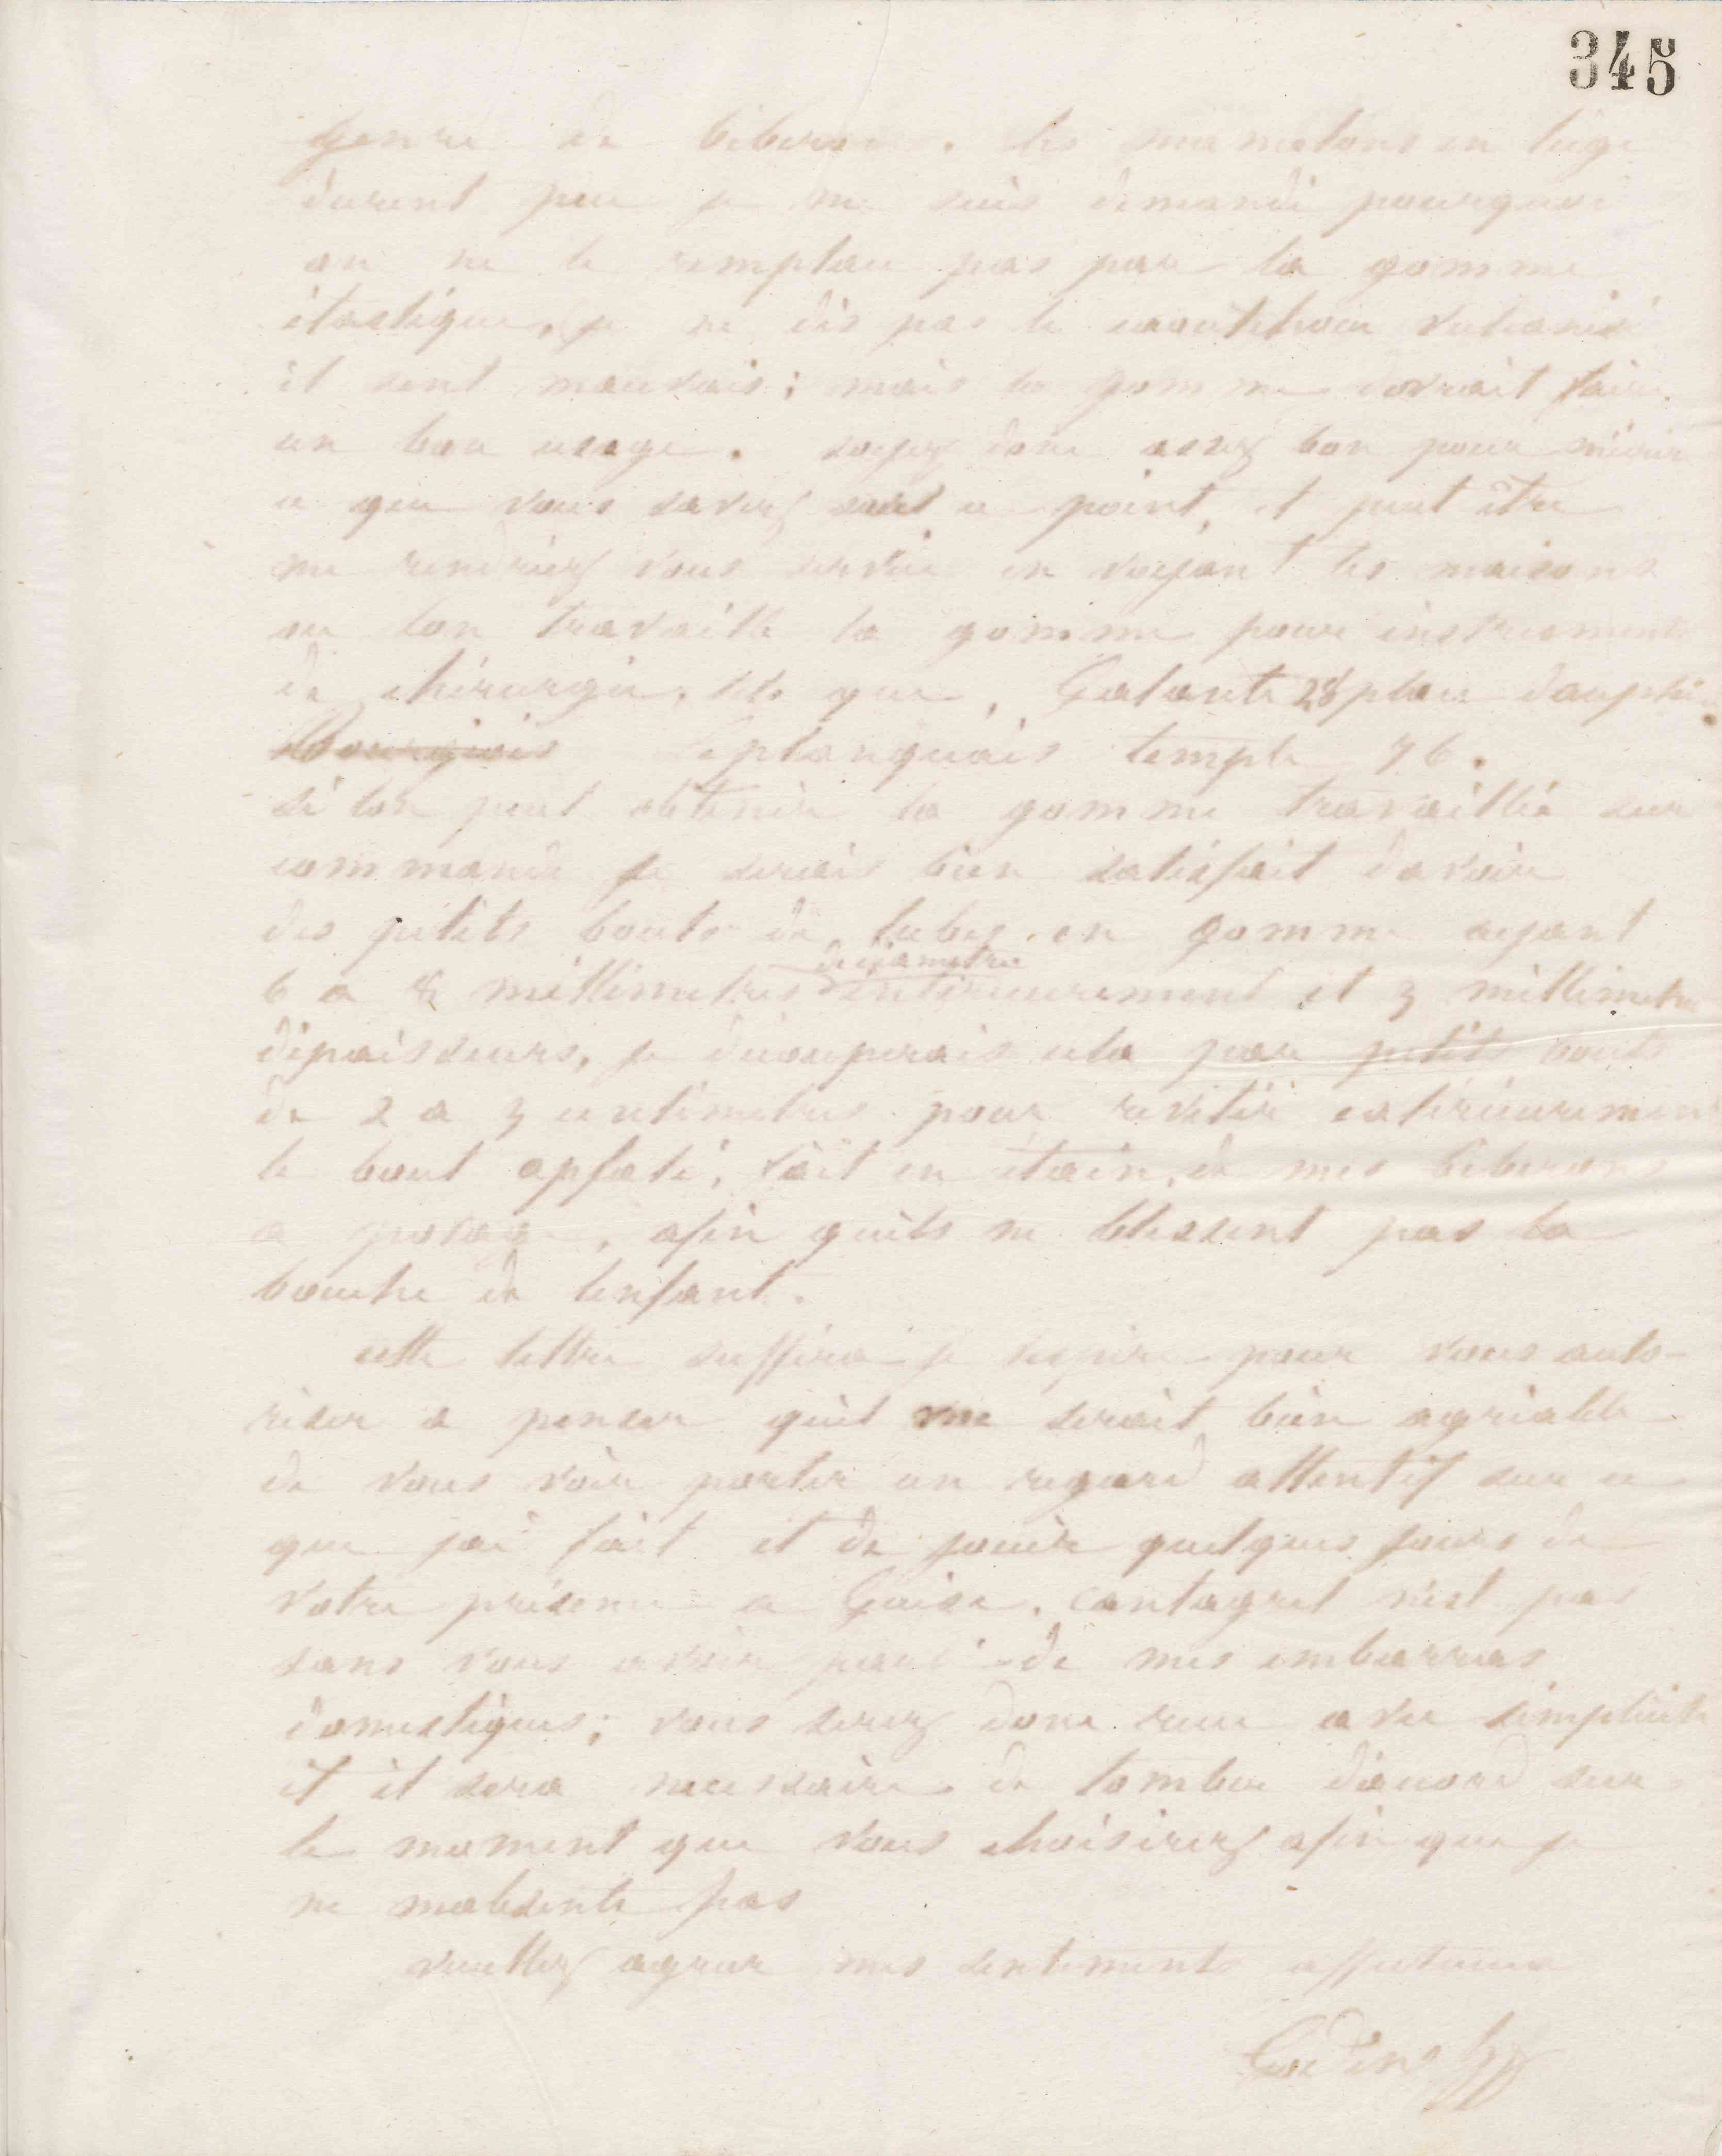 345
genre de biberons. les mamelons en liège
durent peu je me suis demandé pourquoi
on ne le remplace pas par la gomme
élastique, je ne dis pas le caoutchouc vulcanisé
il sent mauvais; mais la gomme devrait faire
un bon usage. soyez donc assez bon pour m'écrire
ce que vous savez sur ce point, et peut être
me rendriez vous service en voyant les maisons
ou lon travaille la gomme pour instruments
de chirurgie, tels que, Galante 28 place dauphine
Bourgeois Leplanquais temple 46.
si lon peut obtenir la gomme travaillée sur
commande je serais bien satisfait davoir
des petits bouts de tubes en gomme ayant
de diametre
6 a 8 millimetres intérieurement et 3 millimetres
dépaisseurs, je découperais cela par petits bouts
de 2 a 3 centimetres pour revêtir extérieurement
le bout aplati, fait en étain, de mes biberons
a , afin quils ne blessent pas la
bouche de lenfant.
cette lettre suffira je lespère pour vous auto-
riser a penser quil me serait bien agréable
de vous voir porter un regard attentif sur ce
que jai fait et de jouir quelques jours de
votre présence a Guise. Cantagrel nest pas
sans vous avoir parlé de mes embarras
domestiques; vous serez donc recu avec simplicité
et il sera necessaire de tomber daccord sur
le moment que vous choisirez afin que je
ne mabsente pas
veuillez agréer mes sentiments affectueux
Godin